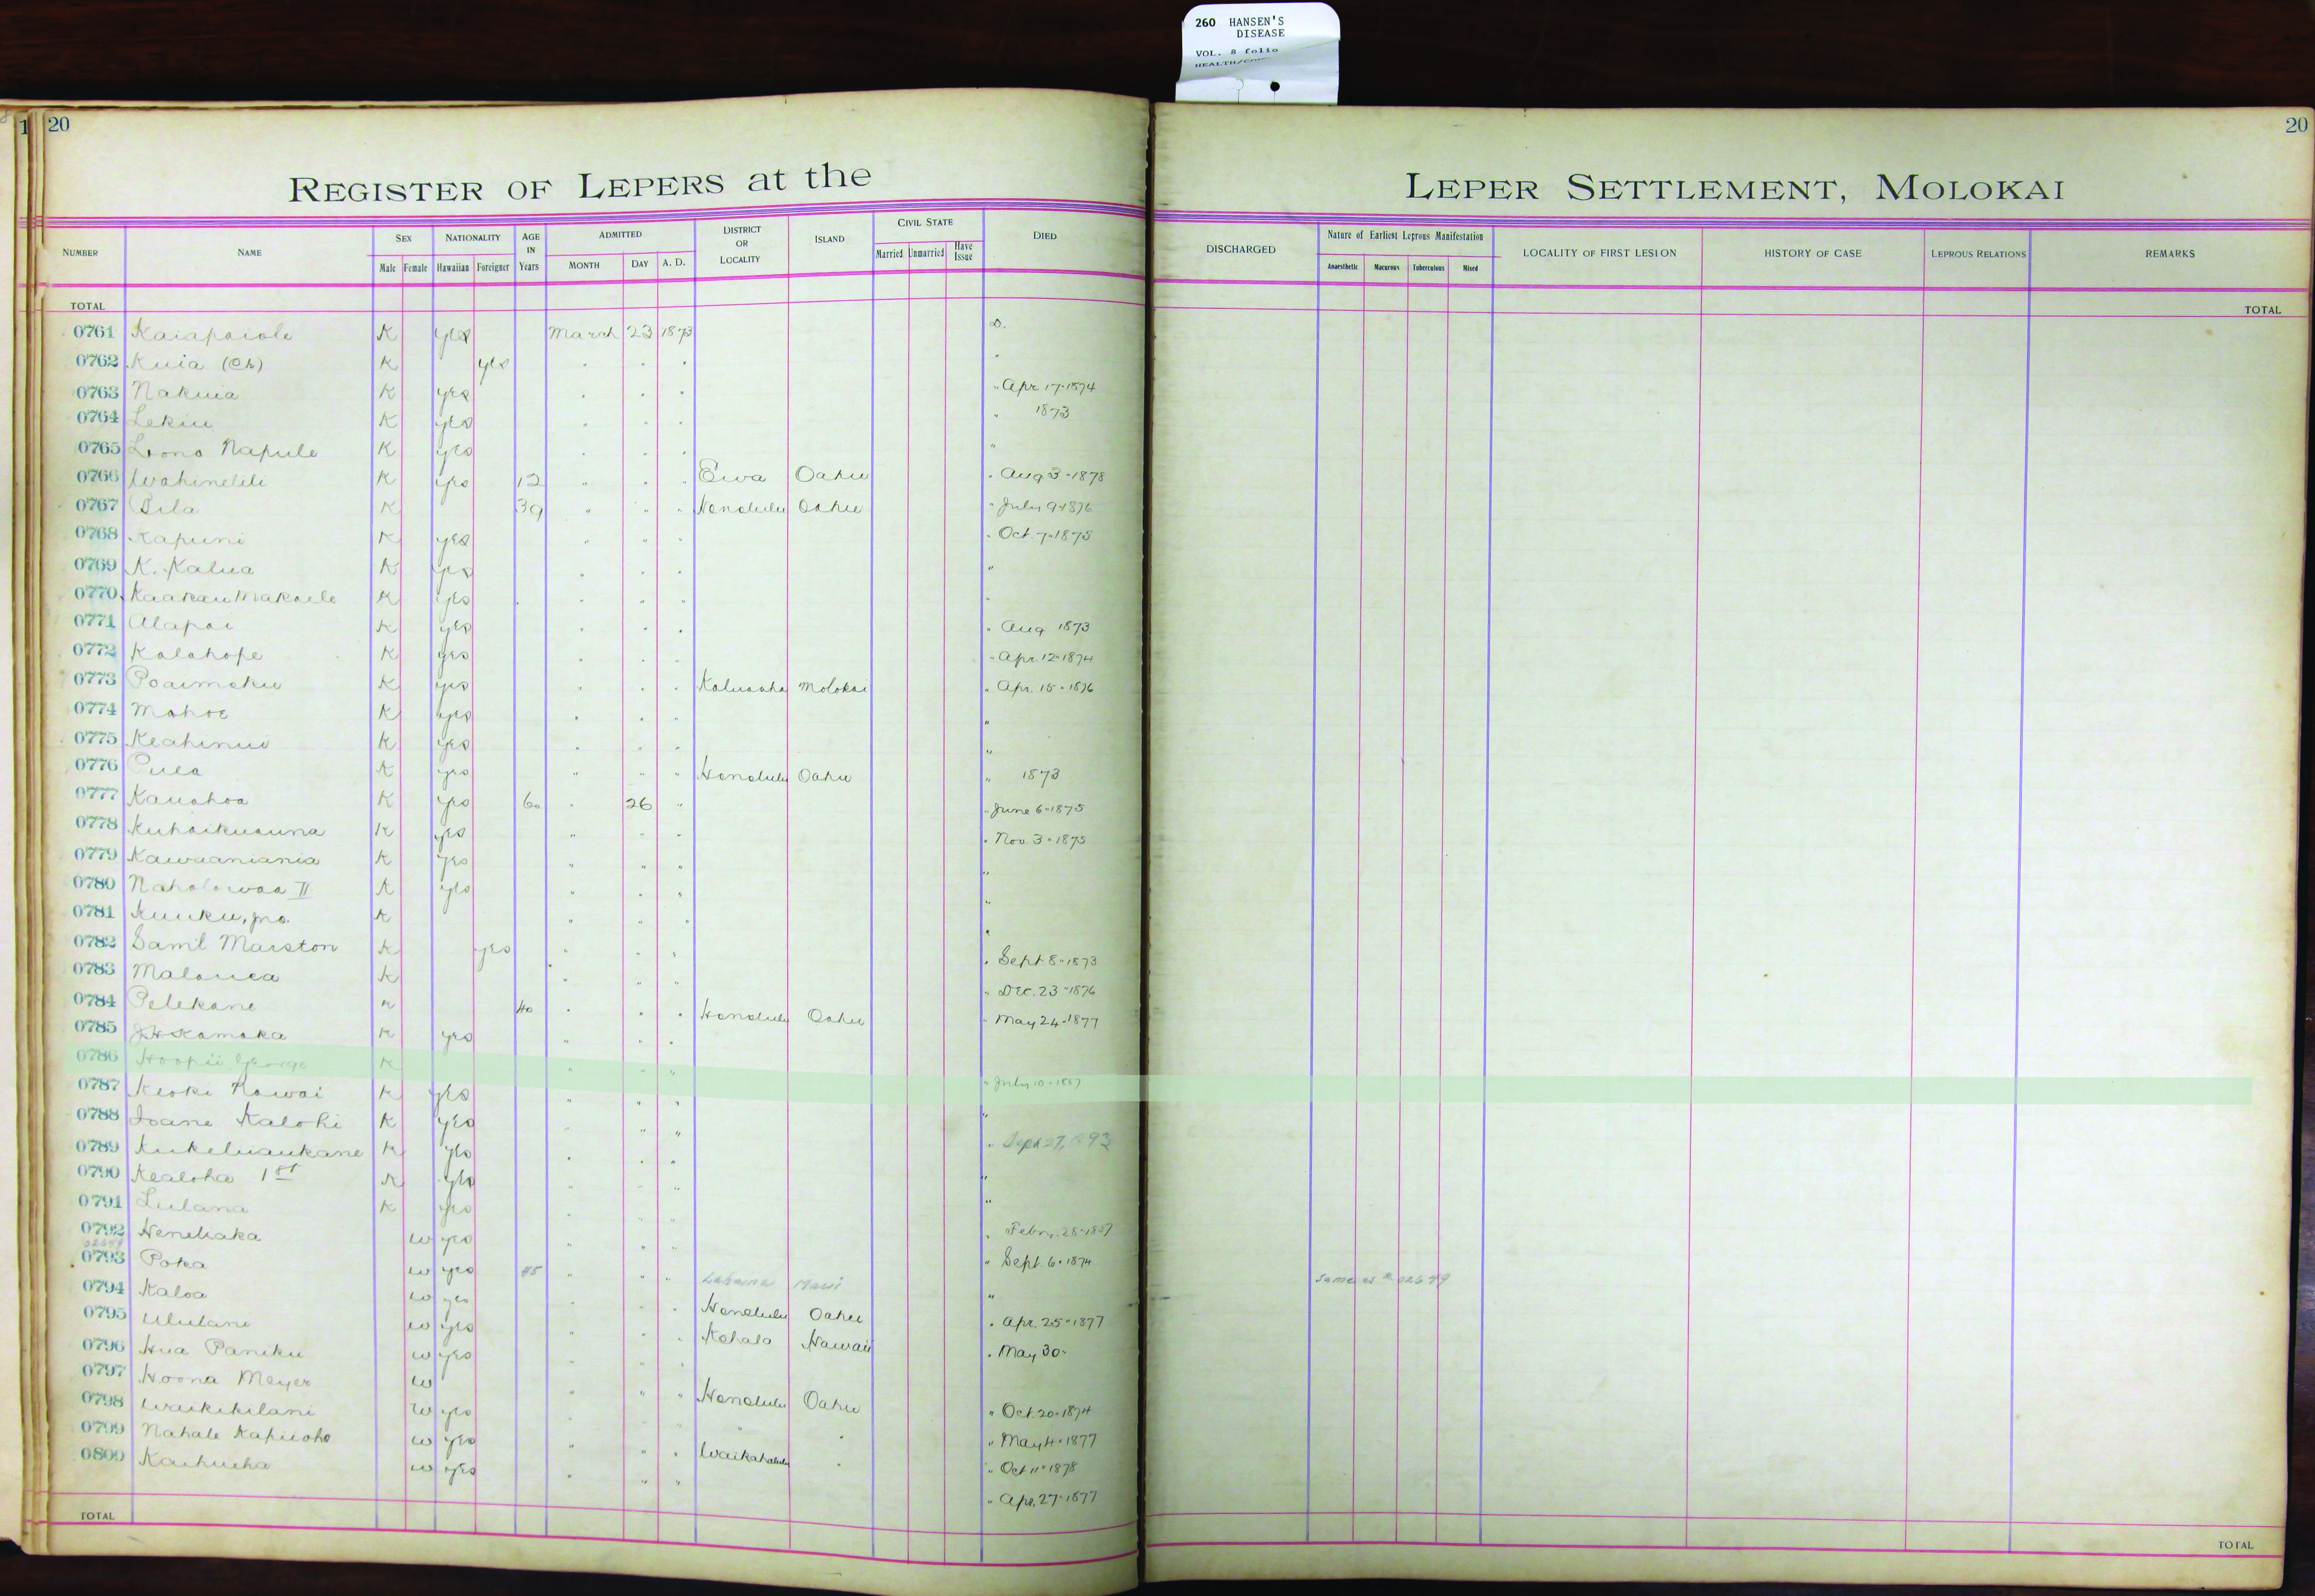 260 HANSEN'S
DISEASE
VOL. 8 folio
20
20
REGISTER OF LEPERS at the LEPER SETTLEMENT, MOLOKAI
NUMBER NAME SEX Male Female NATIONALITY Hawaiian Foreigner AGE IN Years ADMITTED MONTH DAY A. D. DISTRICT OR LOCALITY ISLAND CIVIL STATE Married Unmarried Have Issue DIED DISCHARGED Nature of Earliest Leprous Manifestation Anaesthetic Macurous Tuberculous Mixed LOCALITY OF FIRST LESION HISTORY OF CASE LEPROUS RELATIONS REMARKS
TOTAL TOTAL
0761 Kaiapaiole K yes March 23 1873 D.
0762 Kuia (Ch) K yes
0763 Nakuia K yes " Apr 17-1874
0764 Lekiu K yes " 1873
0765 Lono Napule K yes "
0766 Wahinelili K yes 12 " " " Ewa Oahu " Aug 3-1878
0767 Pila K 39 " " " Honolulu Oahu " July 9-1876
0768 Kapuni K yes " " " Oct. 7-1875
0769 K. Kalua K yes "
0770 Kaakau Makaele K yes
0771 Alapai K yes " Aug 1873
0772 Kalahope K yes " Apr. 12-1874
0773 Poaimoku K yes Kaluaaha Molokai " Apr. 15-1876
0774 Mahoe K yes "
0775 Keahinui K yes "
0776 Pula K yes " " " Honolulu Oahu " 1873
0777 Kauahoa K yes 60 " 26 " " June 6-1875
0778 Kuhaikuauna K yes " " " " Nov. 3-1875
0779 Kawaaniania K yes " " " "
0780 Naholowaa II K yes " " " "
0781 Kuuku, jno. K " " " "
0782 Saml Marston K yes " " " " Sept 8-1873
0783 Malanea K " " " " Dec. 23-1876
0784 Pelekane K 40 " " " Honolulu Oahu " May 24-1877
0785 J.H. Kamaka K yes " " "
0786 Hoopii George K " " " " July 10-1887
0787 Keoki Kawai K yes " " " "
0788 Ioane Kalohi K yes " " " Sept 27, 1893
0789 Kukeluaukane K yes " " " "
0790 Kealoha 1st K yes " " " "
0791 Lulana K yes " " " Febry. 28-1887
0792 Heneliaka W yes " " " " Sept. 6-1874
02649
0793 Poka W yes 45 " " " Lahaina Maui " same as # 02649
0794 Kaloa W yes Honolulu Oahu " Apr. 25-1877
0795 Ululani W yes Kohala Hawaii " May 30-
0796 Hua Paniku W yes
0797 Hoona Meyer W " " " Honolulu Oahu " Oct. 20-1874
0798 Waikikilani W yes " May 4-1877
0799 Nahale Kapuoho W yes " " " Waikahalulu " " Oct 11-1878
0800 Kaihueha W yes " " " " Apr. 27-1877
TOTAL TOTAL